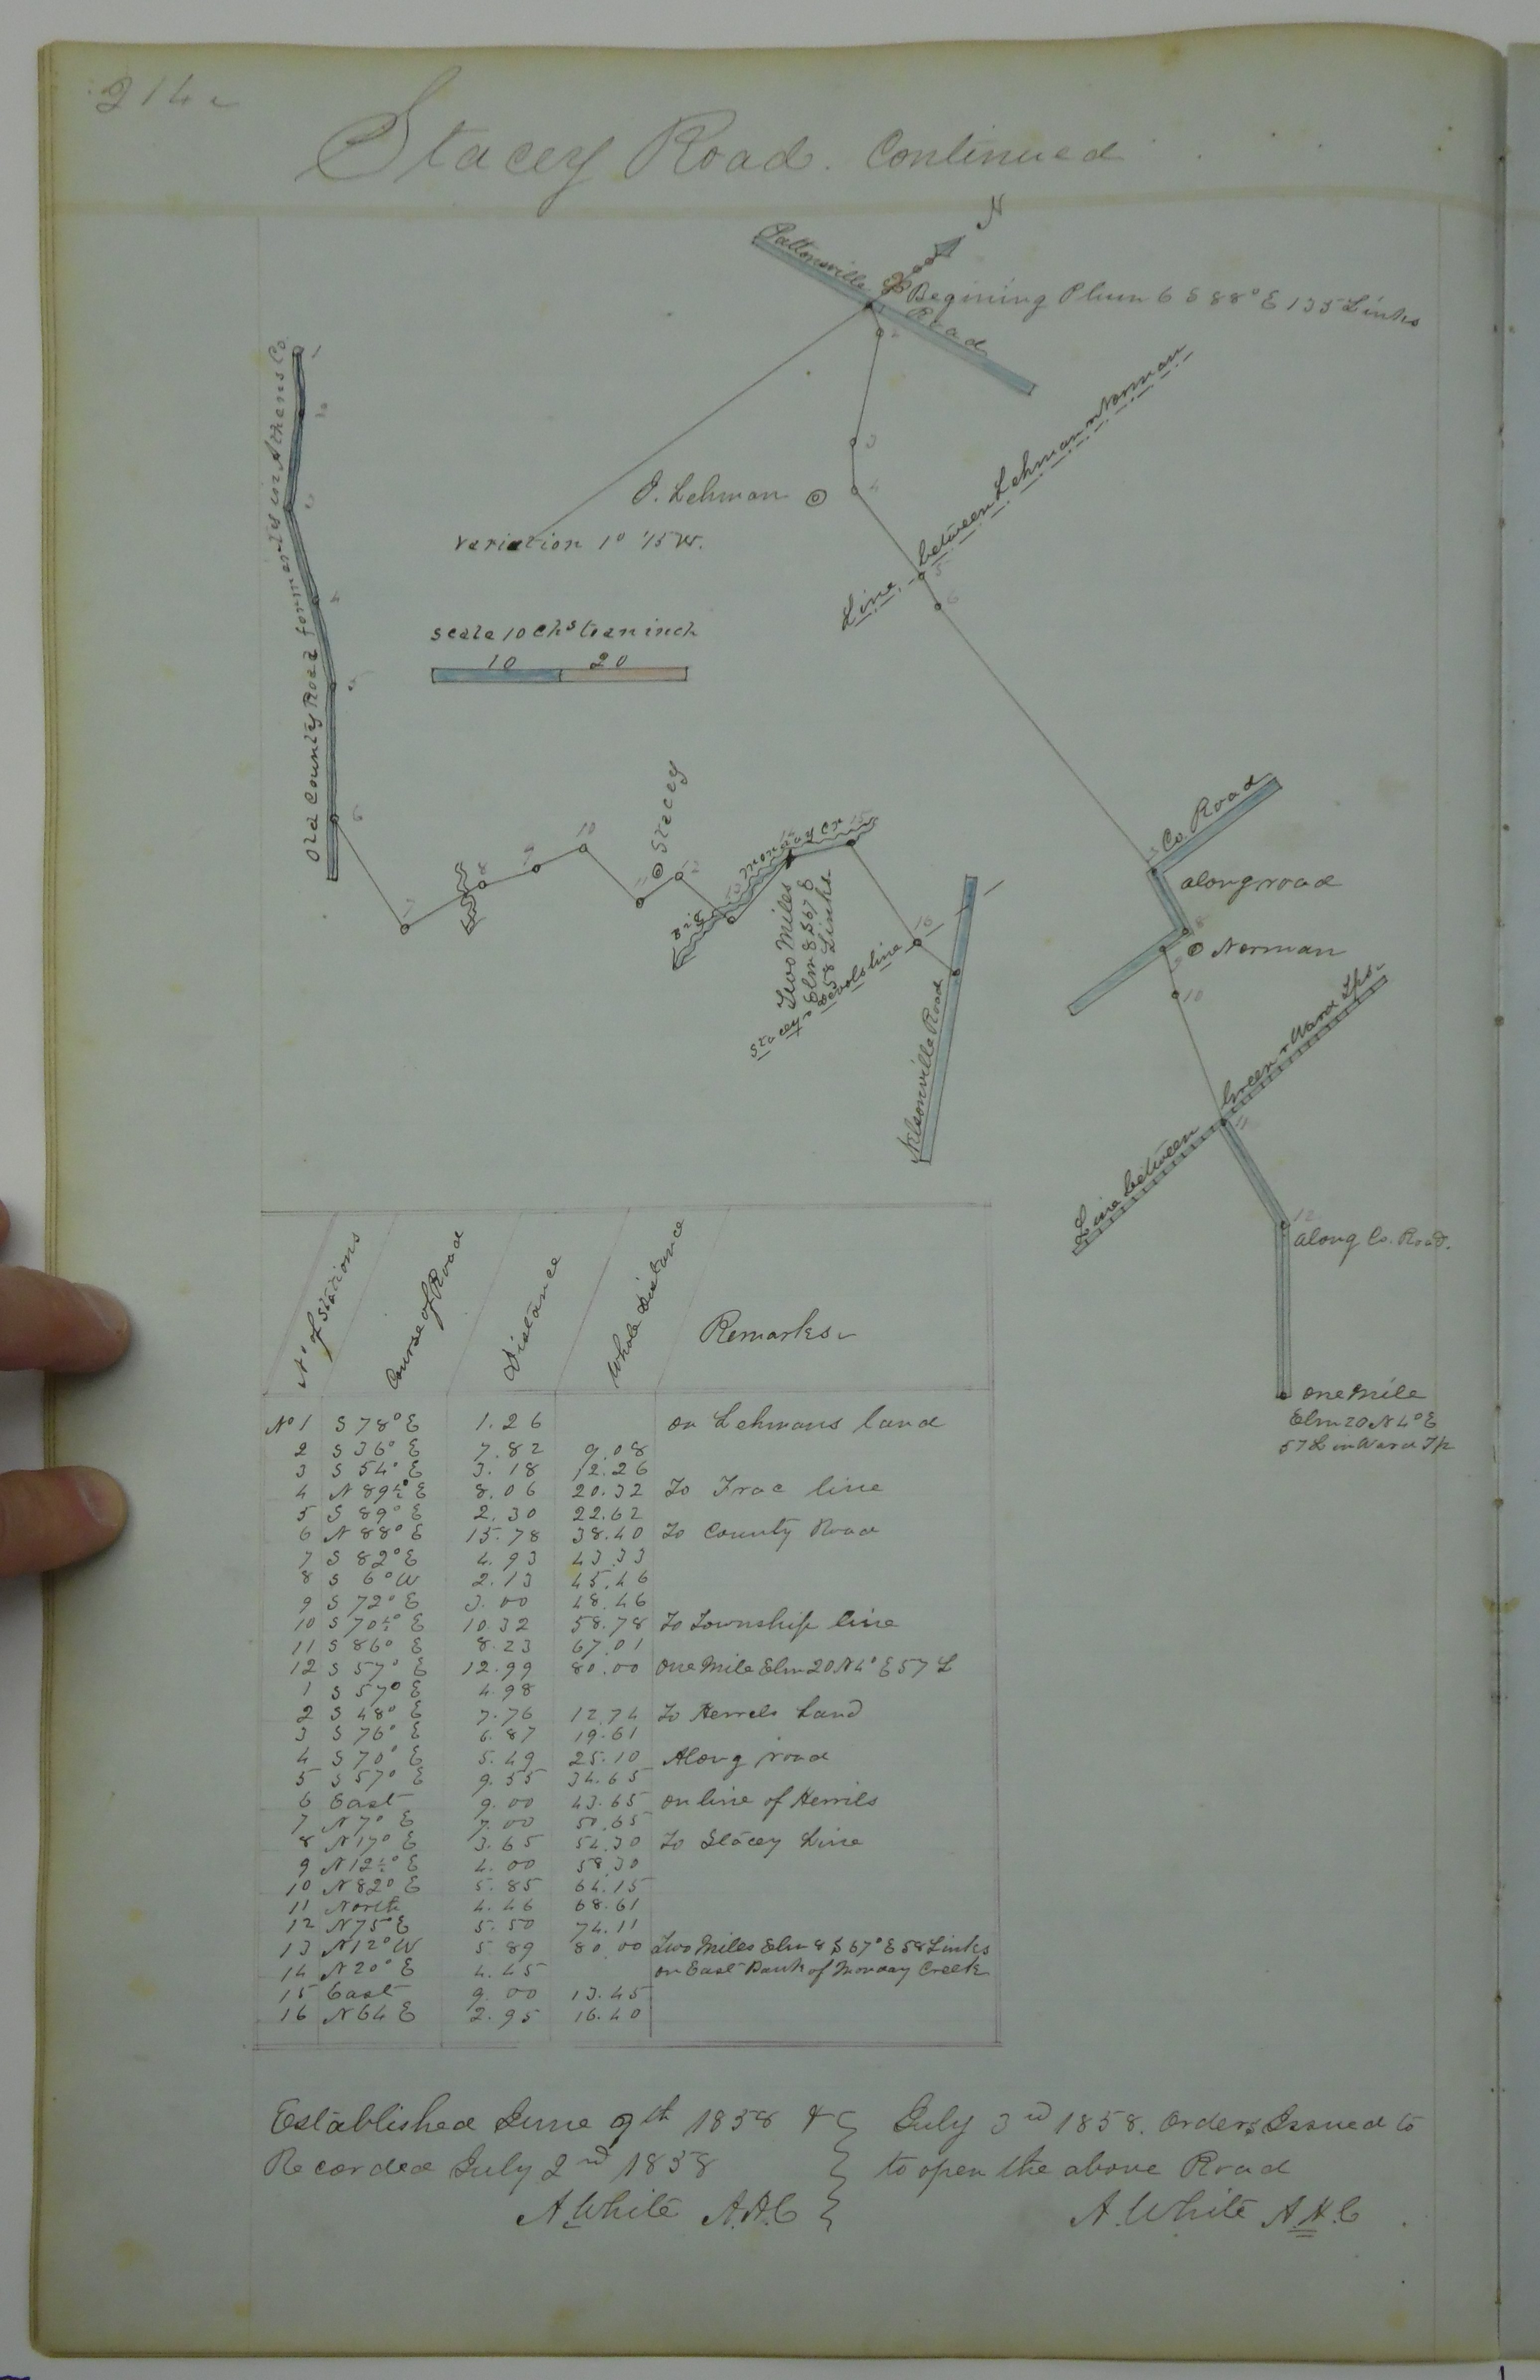 214
Stacey Road. Continued
N
Pattonsville Road
Begining Plum 6 S 88° E 135 Links
1
2
3
4
J. Lehman
variation 1° 15 W.
Line between Lehman & Norman
5
6
scale 10 Chs to an inch
10 20
Old County Road formerly in Athens Co.
1
2
3
4
5
6
7
8
9
10
11
Stacey
12
13
Big Monday Cr
14
15
Two Miles
Elm 8 S 67 E
58 Links
Stacey & Devols line
16
Nelsonville Road
7
Co. Road
along road
8
Norman
9
10
Line between Green & Ward Tps.
11
12
along Co. Road.
one Mile
Elm 20 N 4° E
57 L in Ward Tp
No of Stations Course of Road Distance Whole Distance Remarks
No 1 S 78° E 1.26 on Lehmans land
2 S 36° E 7.82 9.08
3 S 54° E 3.18 12.26
4 N 89½° E 8.06 20.32 To Frac line
5 S 89° E 2.30 22.62
6 N 88° E 15.78 38.40 To County Road
7 S 82° E 4.93 43.33
8 S 6° W 2.13 45.46
9 S 72° E 3.00 48.46
10 S 70½° E 10.32 58.78 To Township line
11 S 86° E 8.23 67.01
12 S 57° E 12.99 80.00 one Mile Elm 20 N 4° E 57 L
1 S 57° E 4.98
2 S 48° E 7.76 12.74 To Herrels Land
3 S 76° E 6.87 19.61
4 S 70° E 5.49 25.10 Along road
5 S 57° E 9.55 34.65
6 East 9.00 43.65 on line of Herrils
7 N 7° E 7.00 50.65
8 N 17° E 3.65 54.30 To Stacey Line
9 N 12½° E 4.00 58.30
10 N 82° E 5.85 64.15
11 North 4.46 68.61
12 N 75° E 5.50 74.11
13 N 12° W 5.89 80.00 Two Miles Elm 8 S 67° E 58 Links
14 N 20° E 4.45 on East Bank of Monday Creek
15 East 9.00 13.45
16 N 64 E 2.95 16.40
Established June 9th 1858 &
Recorded July 2nd 1858
A. White A.A.C
July 3rd 1858. Orders Issued to
to open the above Road
A. White A.A.C